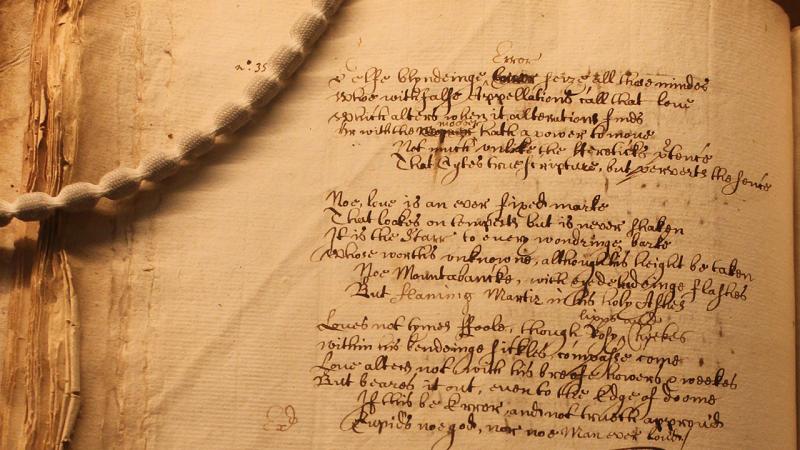 Error
nº. 35
Selfe blyndeinge seize all those mindes
Whoe with false Appellations call that love
Which alters when it alterations finds
mover
Or with the hath a power to move
Not much unlike the Hereticks ptence
That Cytes true scripture, but perverts the sence
Noe, love is an ever fixed marke
That lookes on tempests but is never shaken
It is the Starr to every wondringe barke
Whose worth's unknowne, although his height be taken
Noe Mountabancke, with eye deludeinge flashes
But flaming Martir in his holy Ashes
lipps and
Loves not tymes ffoole, though Rosy Cheekes
within his bendeinge sickles compasse come
Love alters not with his breefe howers & weekes
But beares it out, even to the Edge of doome
If this be Error, and not truth approud
Cupids noe god, nor noe Man ever loud